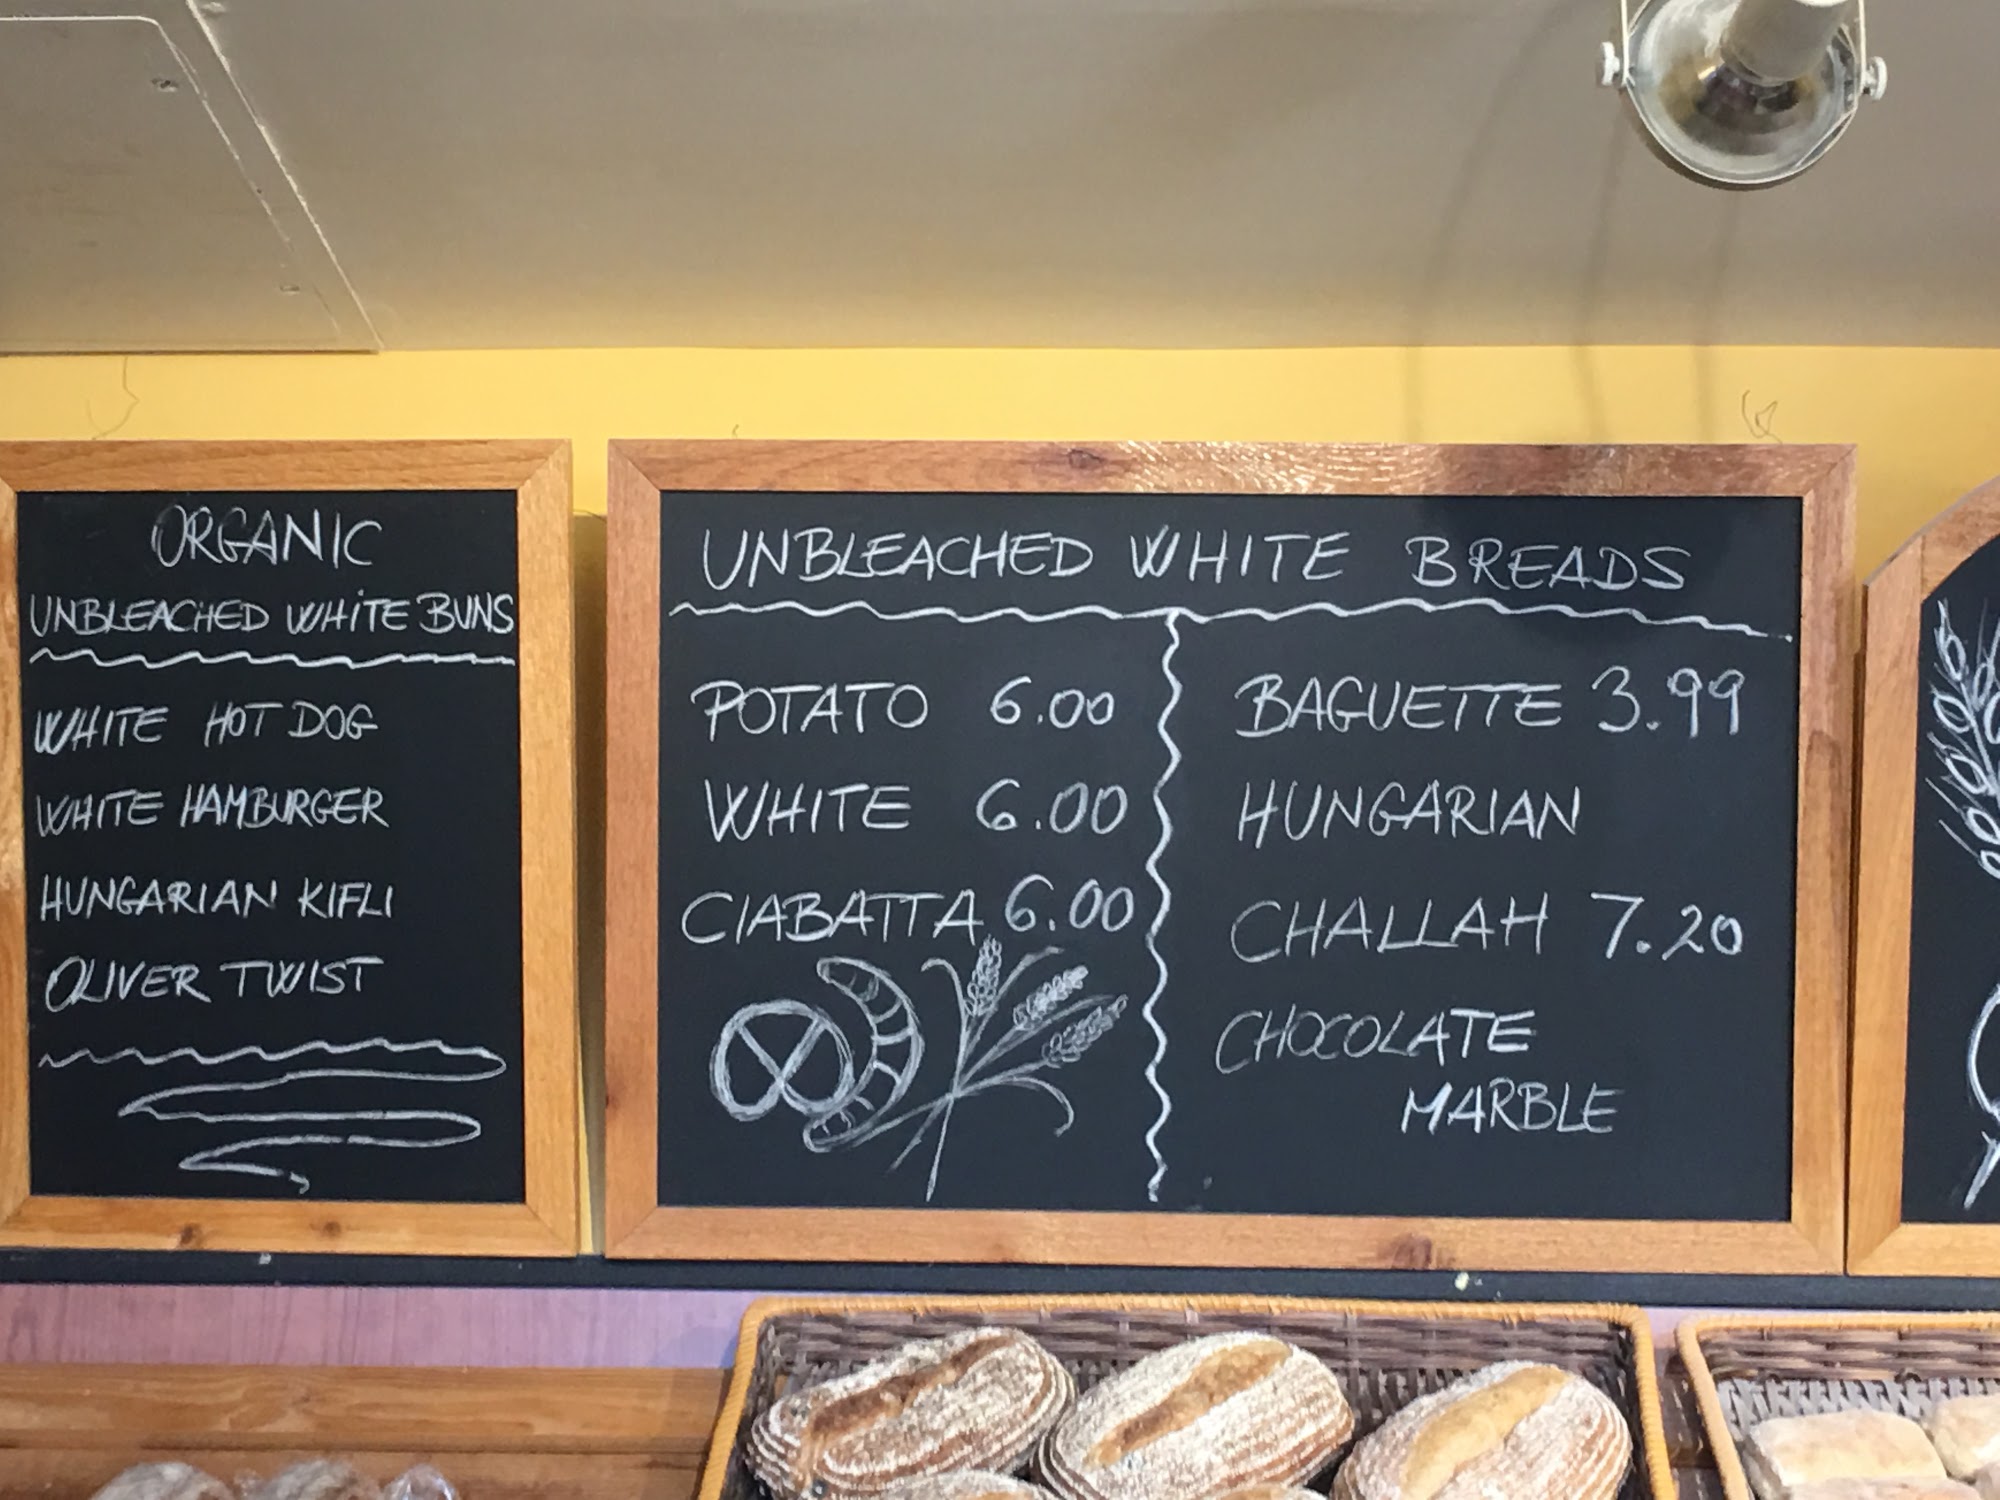 ORGANIC
UNBLEACHED WHITE BUNS
WHITE HOT DOG
WHITE HAMBURGER
HUNGARIAN KIFLI
OLIVER TWIST
UNBLEACHED WHITE BREADS
POTATO 6.00
WHITE 6.00
CIABATTA 6.00
BAGUETTE 3.99
HUNGARIAN
CHALLAH 7.20
CHOCOLATE
MARBLE